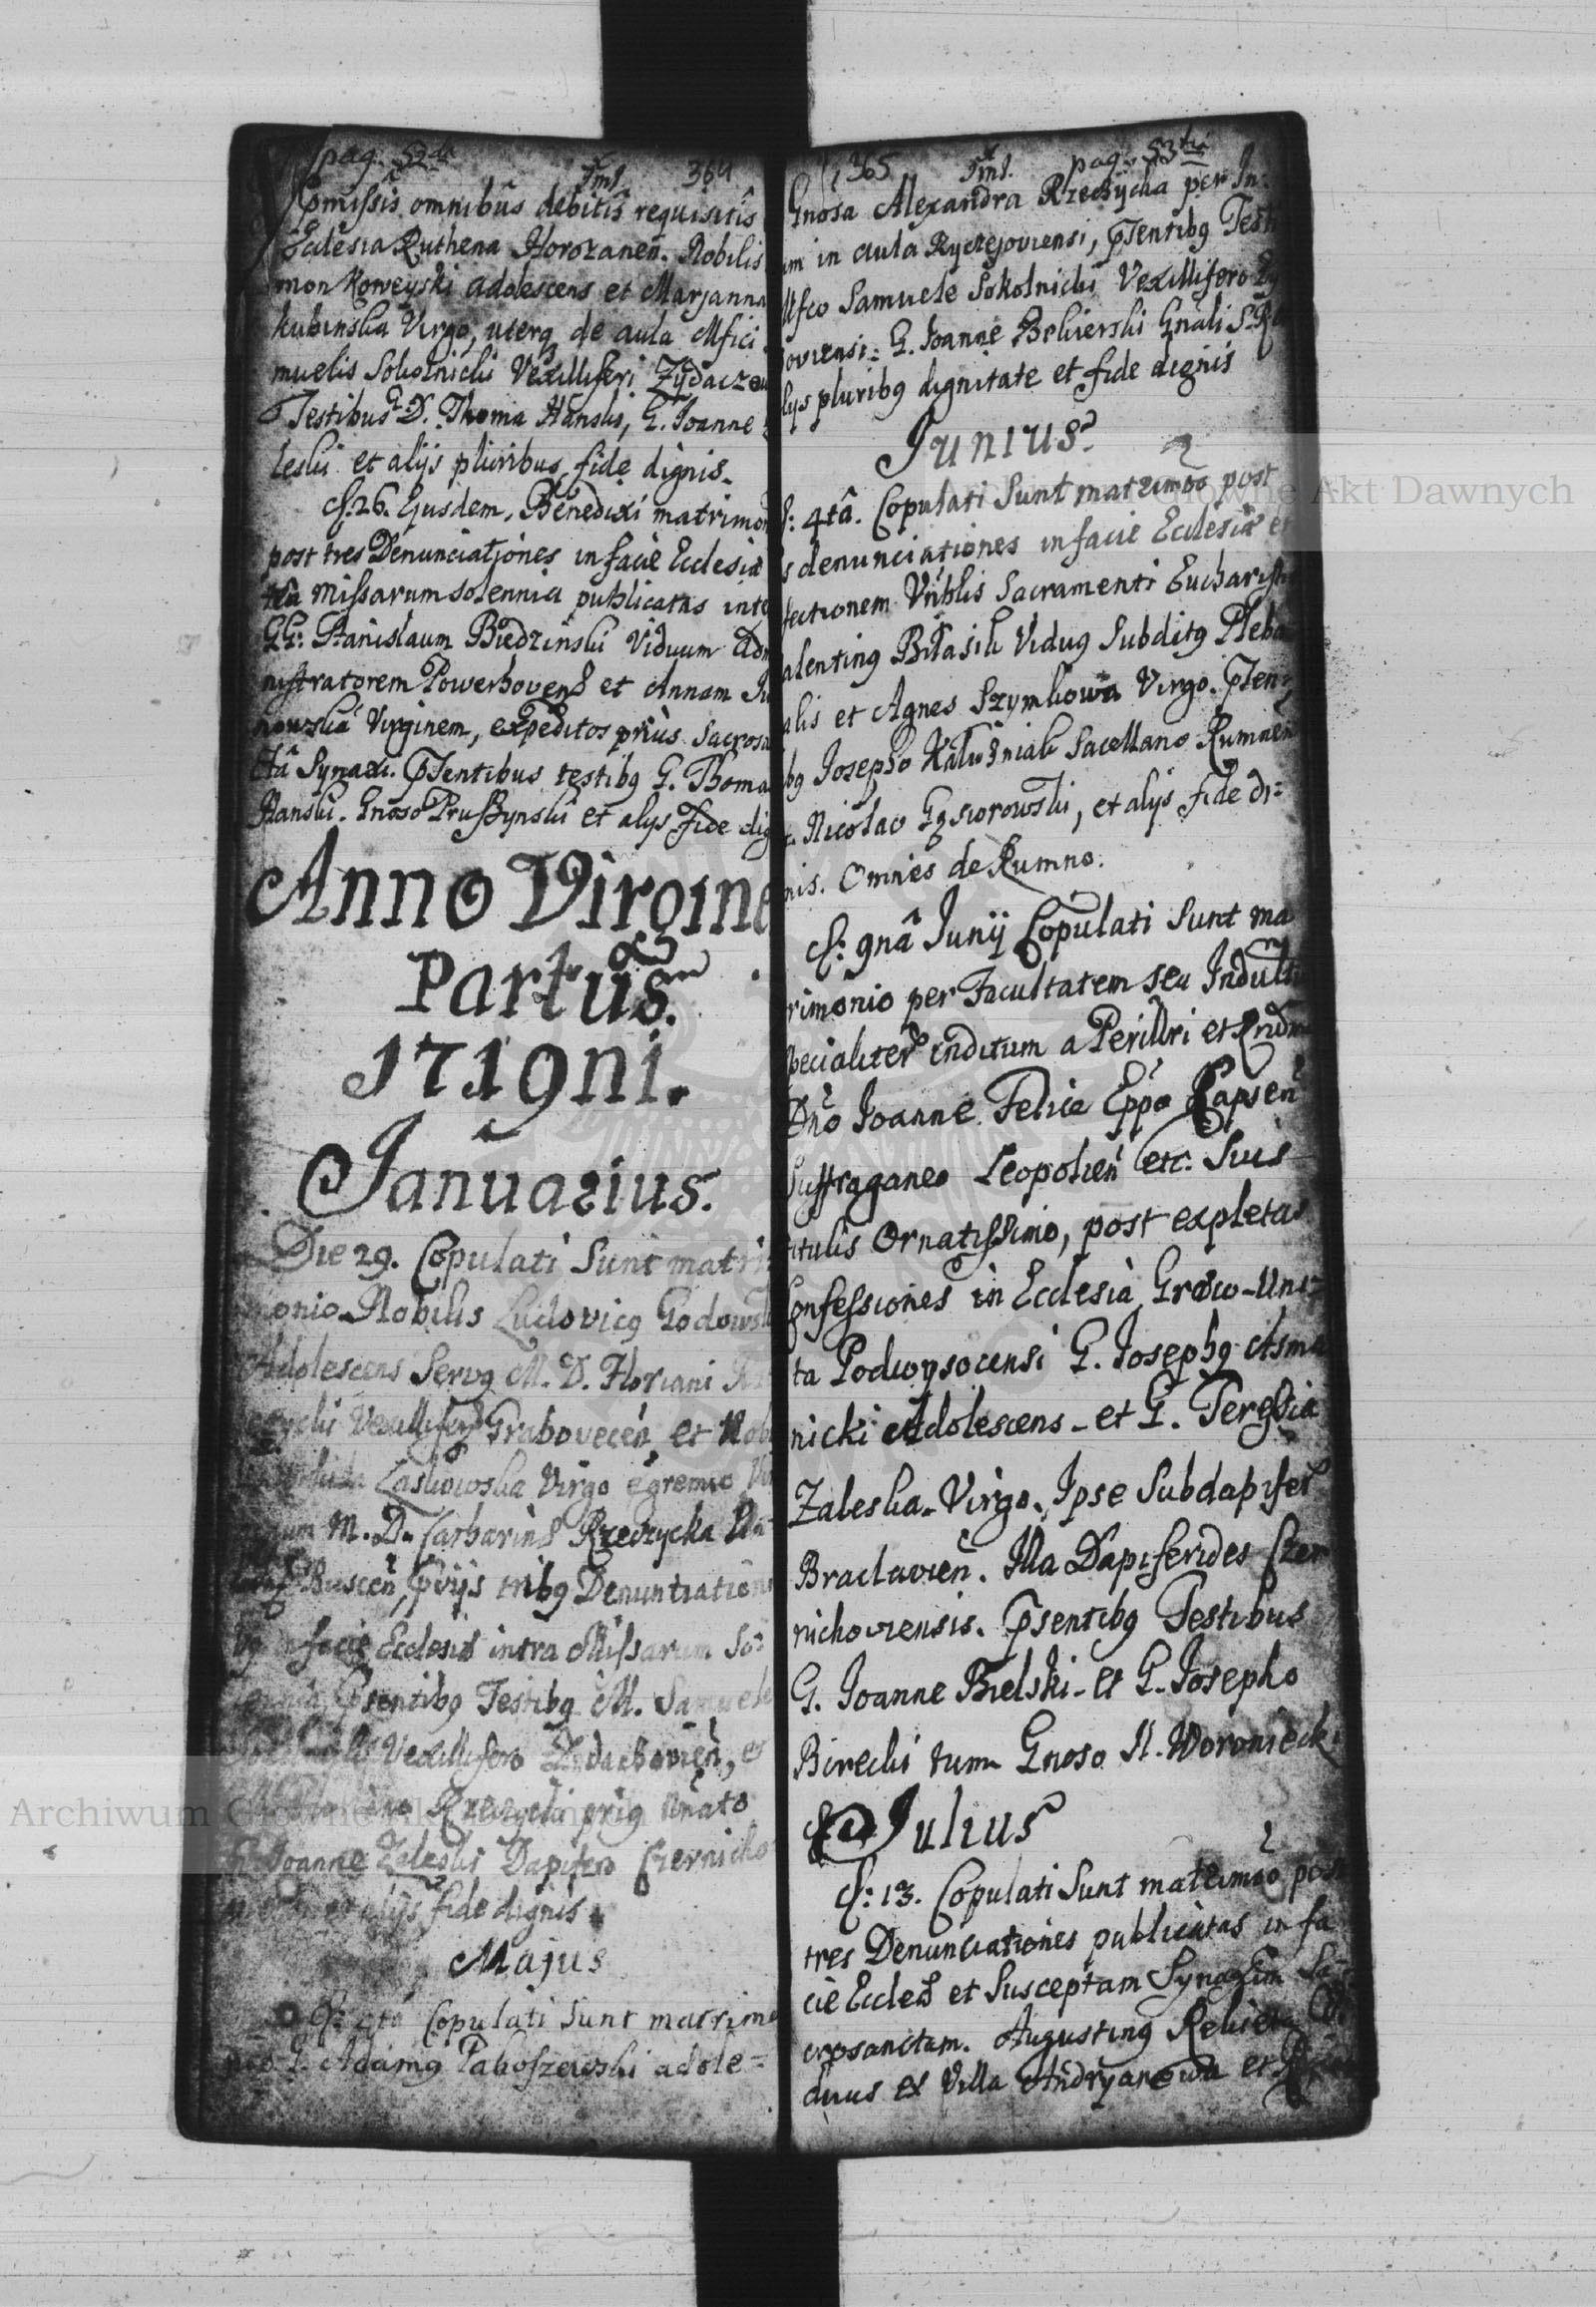 pag. 52da
Ims. 364
Pmissis omnibus debitis requisitis
Ecclesia Ruthena Horozanen. Nobilis
mon Koweyski adolescens et Marjanna
kubinska Virgo, uterq de aula Mfici
muelis Sokolnicki Vexilliferi Zydaczow
Testibus G. D. Thoma Hanski, G. Joanne
leski et alijs pluribus fide dignis.
d. 26. Ejusdem. Benedixi matrimon
post tres Denunciationes in facie Ecclesiæ
Missarum solennia publicatas inte
GG: Stanislaum Biedzinski Viduum Adm
nistratorem Powerhovens et Annam Ju
nowską Virginem, expeditos priùs Sacrosa
ctâ Synaxi. Psentibus testibg G. Thoma
Hanski. Gnoso Prussynski et alys fide dig
Anno Virgine
Partus.
1719ni.
Januarius.
Die 29. Copulati Sunt matri
monio Nobilis Ludovicg Godowsk
Adolescens Servg M. D. Floriani
Vexilliferi Grabovecen et Nob
Laskowska Virgo e gremio Vir
ginum M. D. Catharinæ Rzeczycka
Buscen, pviis tribg Denuntiation
bg in facie Ecclesiæ intra Missarum So=
lennia Psentibg Testibg M. Samuele
Vexillifero Zydachovien, et
Rzeczycki prig nato
G. Joanne Zaleski Dapifero Czernicho
alijs fide dignis
Majus
d: 4tâ Copulati Sunt matrimo
nio G. Adamg Paboszewski adole=
365 Ims. pag. 53tia
Gnosa Alexandra Rzeczycka per In=
um in aula Ryczejoviensi, Psentibg Test
Mfco Samuele Sokolnicki Vexillifero Zy
oviensi: G. Joanne Bekierski Gnali S. R.
lys pluribg dignitate et fide dignis
Junius.
d: 4tâ. Copulati Sunt matrimoo post
s denunciationes in facie Ecclesiæ et
fectionem Vnblis Sacramenti Eucharisti
alenting Bitasik Vidug Subditg Pleba
alis et Agnes Szymkowa Virgo. Psen=
bg Josepho Kałuzniak Sacellano Rumnen
Nicolao Gąsiorowski, et alys fide di=
nis. Omnes de Rumno.
d: 9nâ Junij Copulati Sunt ma
rimonio per Facultatem seu Indult
pecialiter inditum a Perillri et Rndm
Dno Joanne Felice Eppo Rapsen
Suffraganeo Leopolien etc. Suis
titulis Ornatissimo, post expletas
Confessiones in Ecclesia Græco-Uni=
ta Podwysocensi G. Josephg Asma
nicki Adolescens et G. Teressia
Zaleska Virgo, Ipse Subdapifer
Braclavien. Illa Dapiferides Czer
nichoviensis. Psentibg Testibus
G. Joanne Bielski et G. Josepho
Birecki tum Gnoso N. Woroniecki
Julius
d: 13. Copulati Sunt matrimoo post
tres Denunciationes publicatas in fa
cie Ecclesæ et Susceptam Synaxim Sa=
crosanctam. Augusting Rekieta Vi
duus ex Villa Andryanowa et